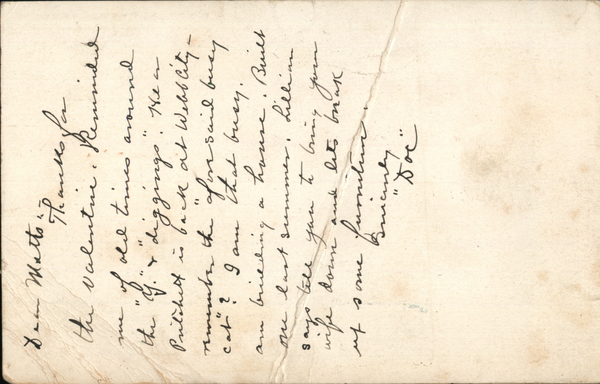 Dear Matts:-
Thanks for
the valentine. Reminded
me "of old times around
the "Y." & "diggings". Hear
Pritchett is back at Webb City -
remember the "afore said busy
cat"? I am that busy.
am building a house. Built
one last summer. Lillian
says tell you to bring your
wife down and lets break
up some furniture.
Sincerely
"Doc"